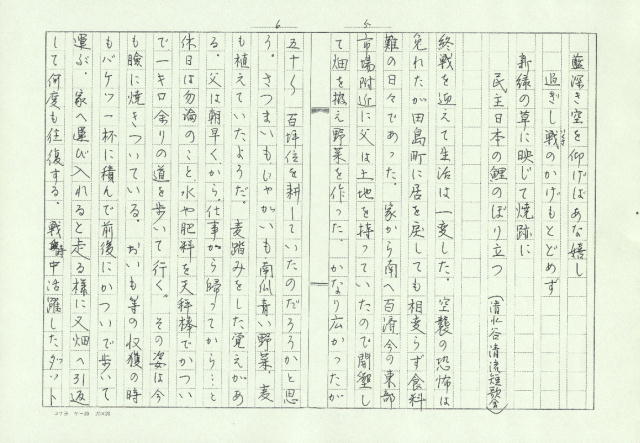 藍深き空を仰げばあな嬉し
過ぎし戦のかげもとどめず
いくさ
新緑の草に映じて焼跡に
民主日本の鯉のぼり立つ
(清水谷清流短歌会)
終戦を迎えて生活は一変した。空襲の恐怖は
免れたが田島町に居を戻しても相変らず食料
難の日々であった。家から南へ百済今の東部
市場附近に父は土地を持っていたので開墾し
て畑を拵え野菜を作った。かなり広かったが
5
6
五十〜百坪位を耕していたのだろうかと思
う。さつまいもじゃがいも南瓜青い野菜、麦
も植えていたようだ。麦踏みをした覚えがあ
る。父は朝早くから、仕事から帰ってから…と
休日は勿論のこと水や肥料を天秤棒でかつい
で一キロ余りの道を歩いて行く。その姿は今
も瞼に焼きついている。おいも等の収穫の時
もバケツ一杯に積んで前後にかついで歩いて
運ぶ。家へ運び入れると走る様に又畑へ引返
して何度も往復する。戦時中活躍したダット
コクヨ ケー20 20×20